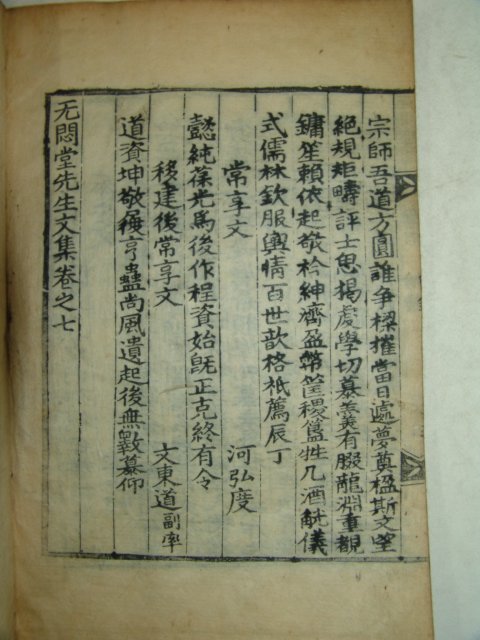 宗師吾道方圓誰爭樑摧當日遽夢奠楹斯文墜
絕規矩疇評士思揭虔學切慕羹有腏龍淵重觀
鏞笙賴依起敬衿紳濟盈幣筐稷簋牲几酒觥儀
式儒林欽服輿情百世歆格祗薦辰丁
常享文 河弘度
懿純葆光爲後作程資始旣正克終有令
移建後常享文 文東道副率
道資坤敬履亨蠱尚風遺起後無斁慕仰
无悶堂先生文集卷之七